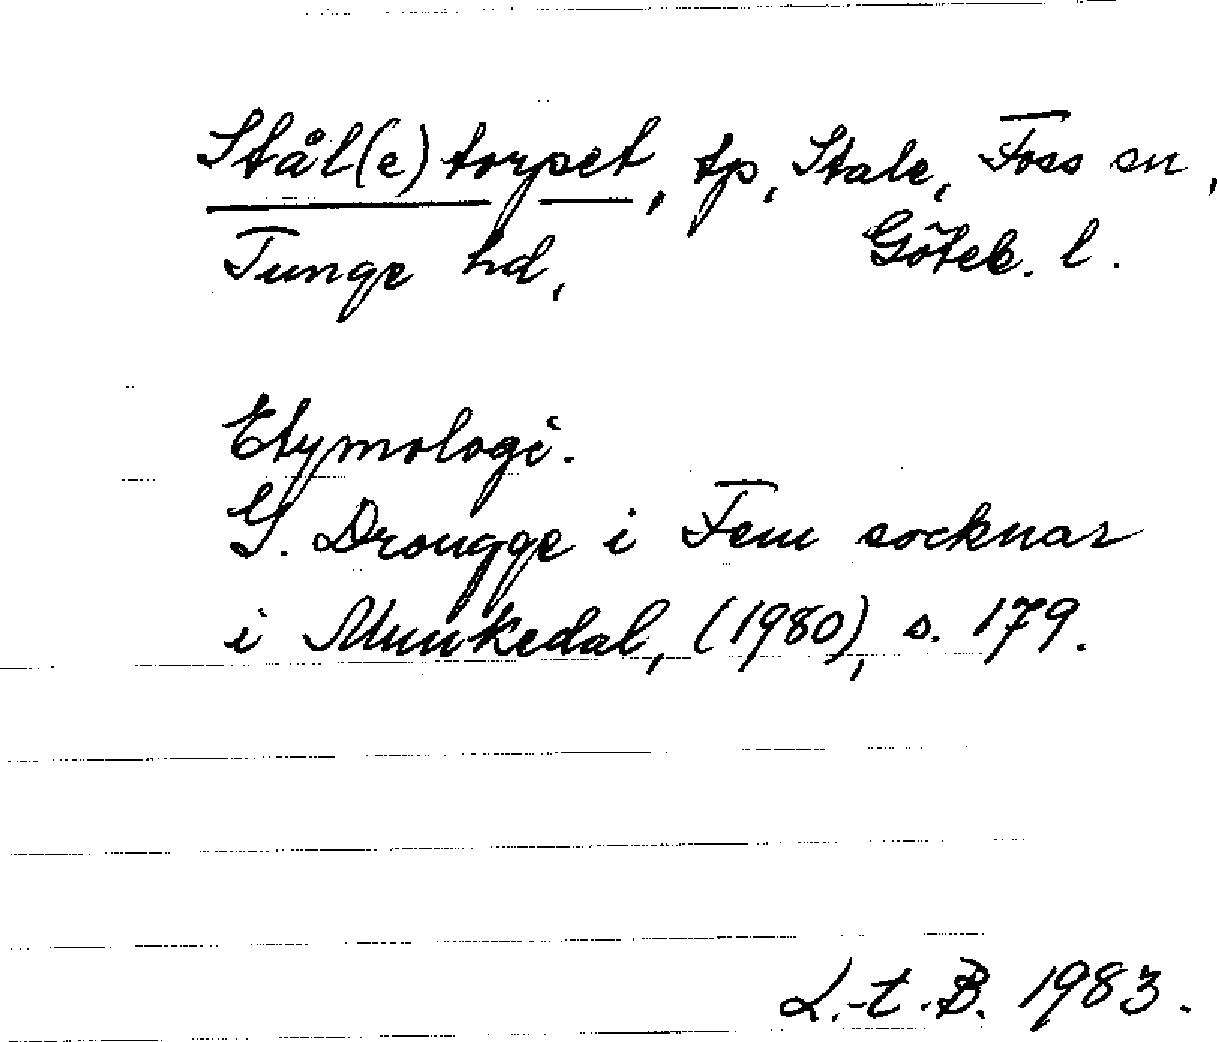 Stål(e)torpet, tp, Stale, Foss sn,
Tunge hd, Göteb. l.
Etymologi.
G. Drougge i Fem socknar
i Munkedal, (1980), s. 179.
L.-t.B. 1983.